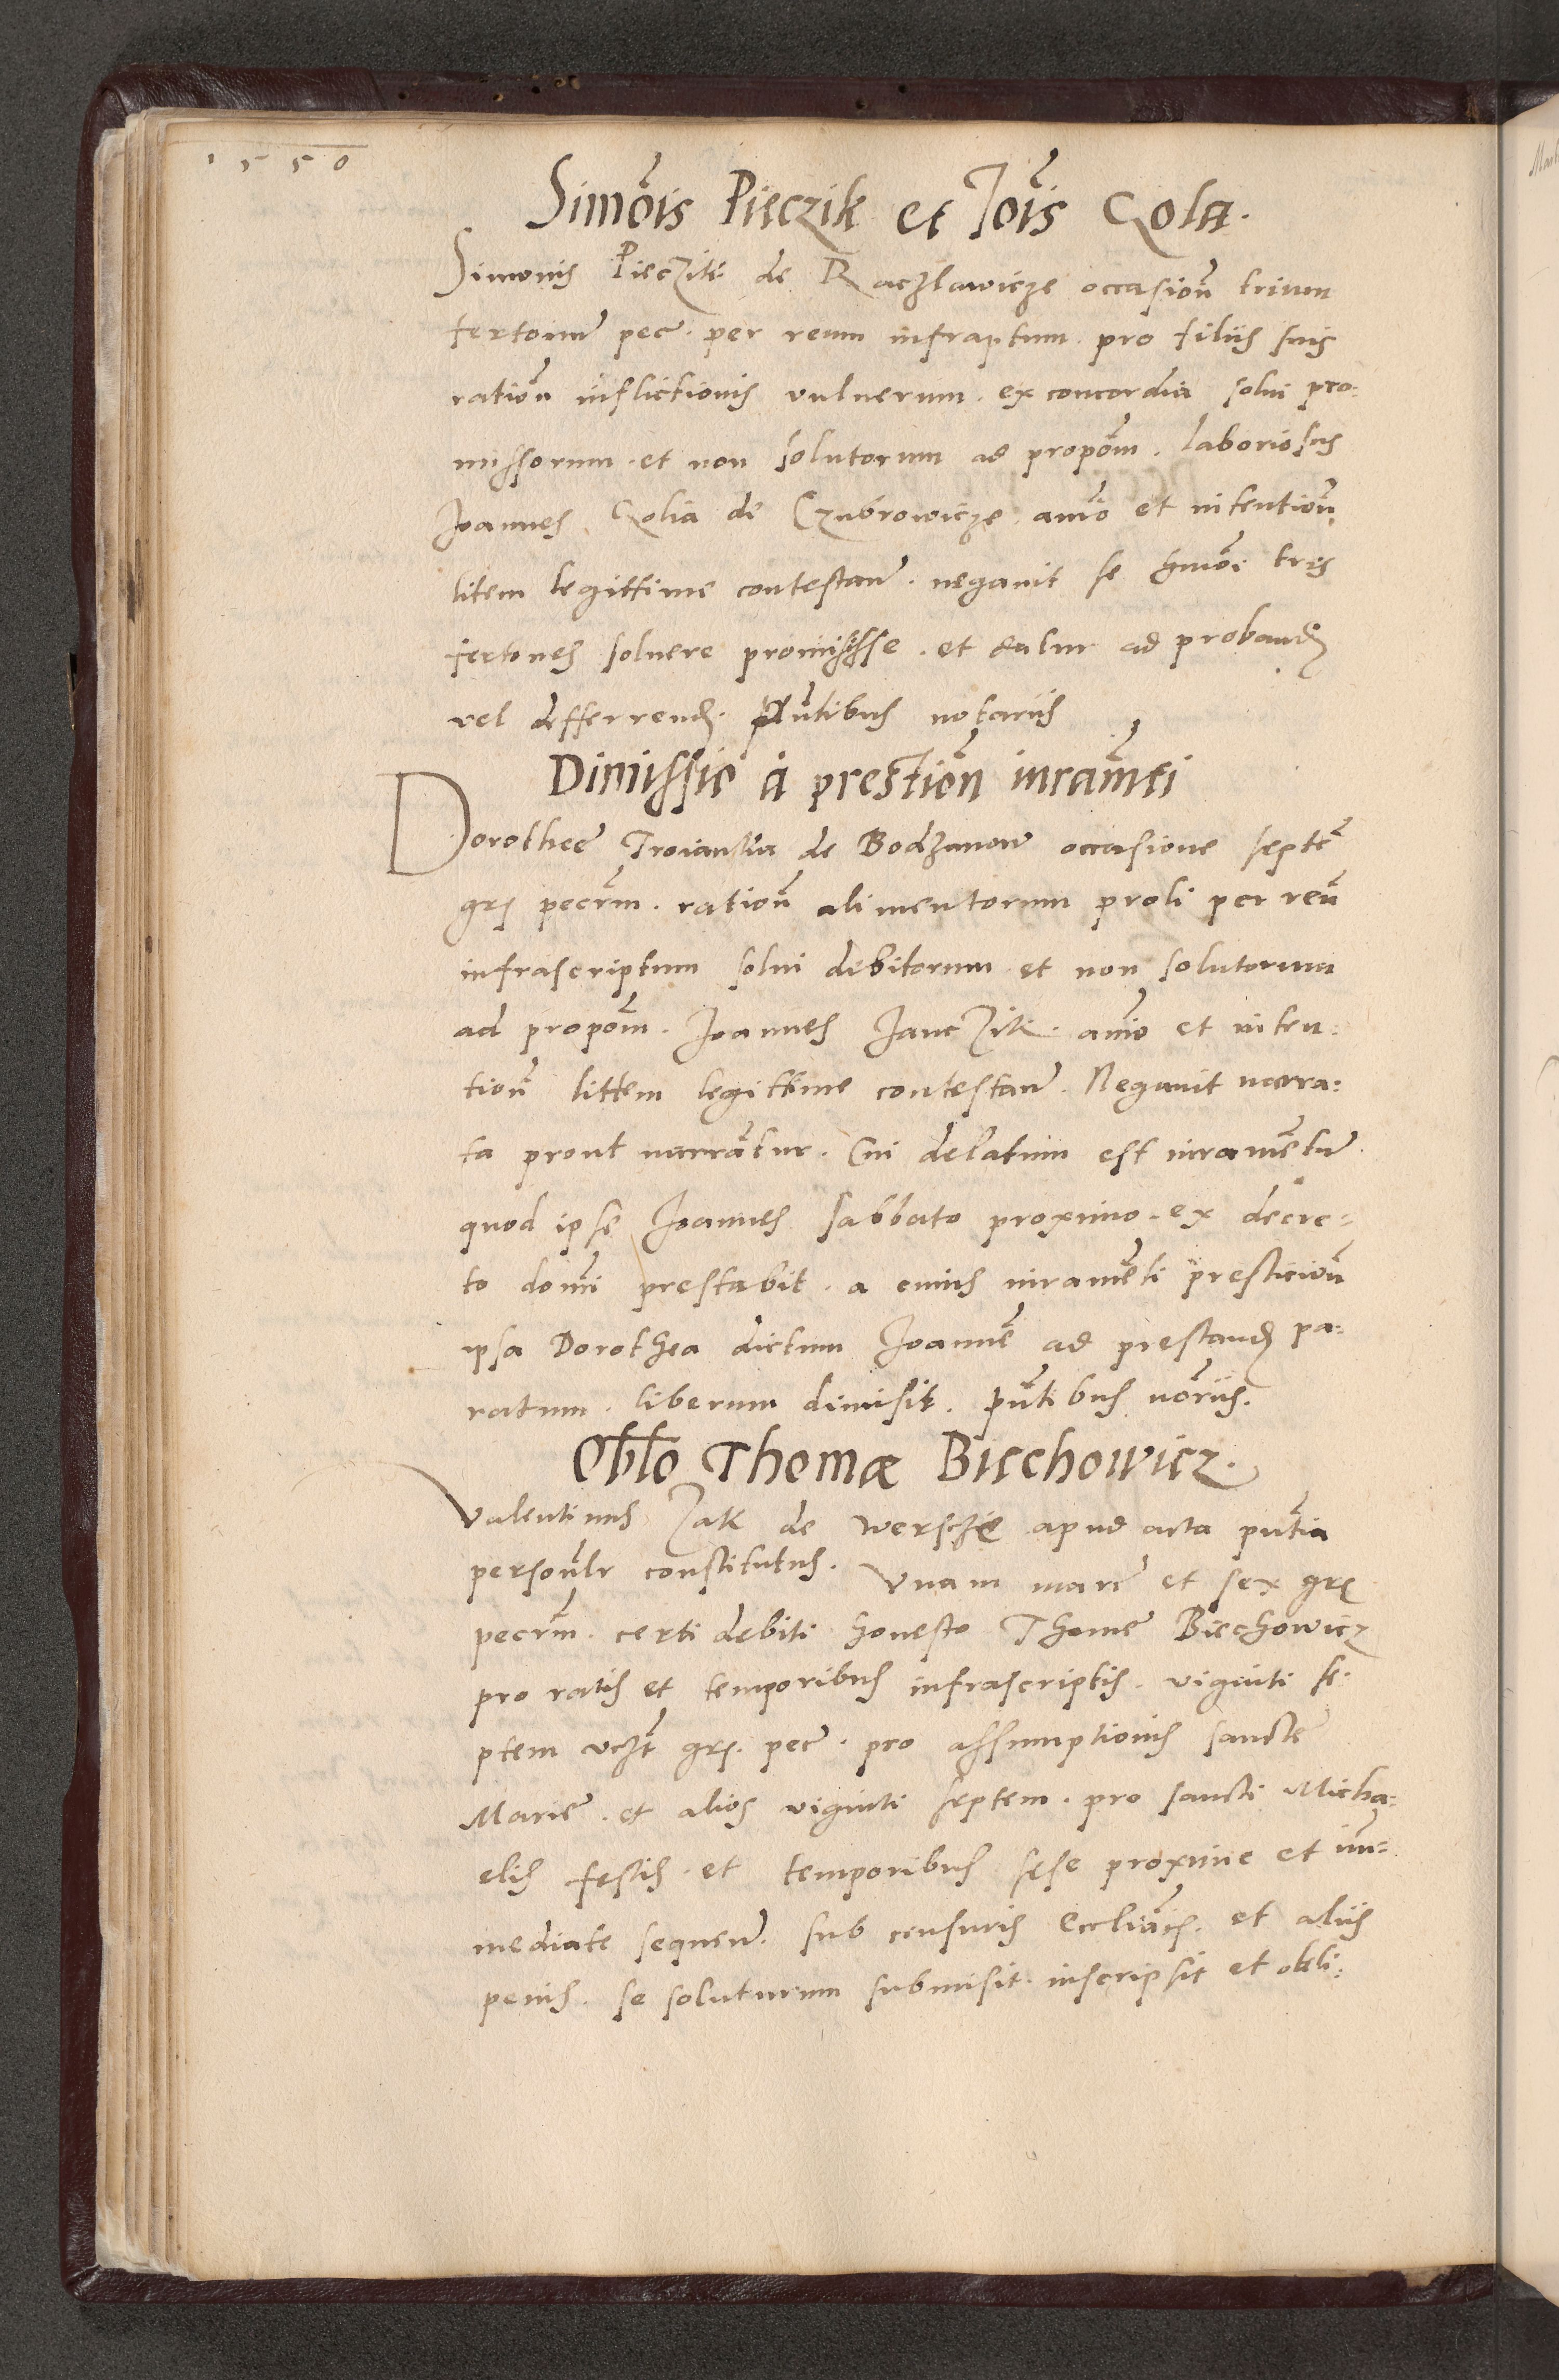 1550
Simo͂is Pieczik et Io͂is Qola.
Simonis Pieczik de Raczlawicze occasion͂ trium
fertonu͂ pec͂. per reum infraptum. pro filiis suis
ration͂ inflictionis vulnerum. ex concordia solui pro-
missorum. et non solutorum ad propo͂m. laboriosus
Joannes Qolia de Czubrowicze a͂mo et intention͂
litem legittime contestan͂. negauit se hmo͂i tres
fertones soluere promisisse. et datur ad proband͂
vel differrend͂. p͂ntibus notariis
Dimissio à prestion͂ iura͂mei
Dorothee de Bodzanow occasione septe͂
grs͂ pecr͂m. ration͂ alimentorum proli per reu͂
infrascriptum solui debitorum et non solutorum
ad propo͂m. Joannes Janczik. a͂mo et inten-
tion͂ littem legittime contestan͂. Negauit narra-
ta prout narra͂tur. Cui delatum est iurame͂tu͂
quod ipse Joannes sabbato proximo. ex decre-
to do͂ni prestabit. a cuius iurame͂ti presticion͂
ipsa Dorothea dictum Joanne͂ ad prestand͂ pa-
ratum. liberum dimisit. p͂ntibus no͂riis.
Obl͂o Thomæ Biechowicz.
Valentinus Zak de apud acta p͂ntia
person͂lr constitutus. Vnam marc͂ et sex grs͂
pecr͂m. certi debiti honesto Thome Biechowicz
pro ratis et temporibus infrascriptis. viginti se-
ptem vczt͂ grs͂. pec͂. pro assumptionis sancte
Marie. et alios viginti septem. pro sancti Micha-
elis festis. et temporibus sese proxime et im-
mediate sequen͂. sub censuris Eccl͂iacis. et aliis
penis. se soluturum submisit. inscripsit et obli-